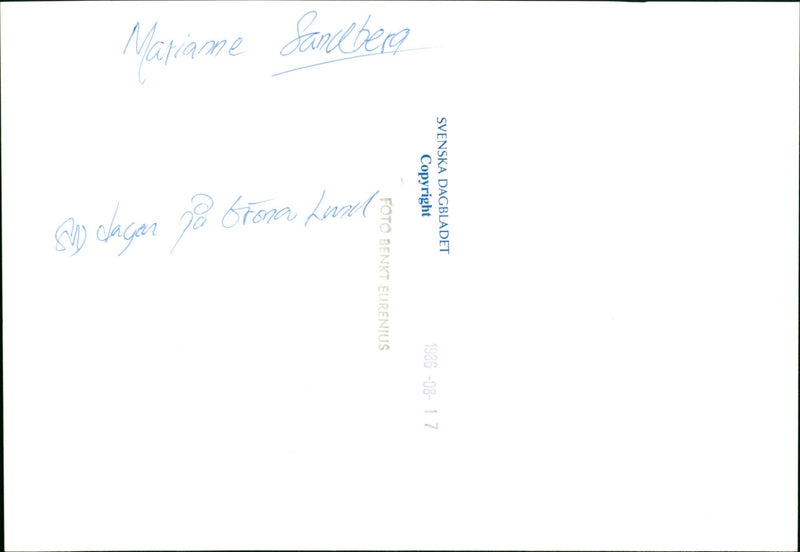 Marianne Sandberg
SvD dagen på Gröna Lund
SVENSKA DAGBLADET
Copyright
FOTO BENKT EURENIUS
1986 -08- 17